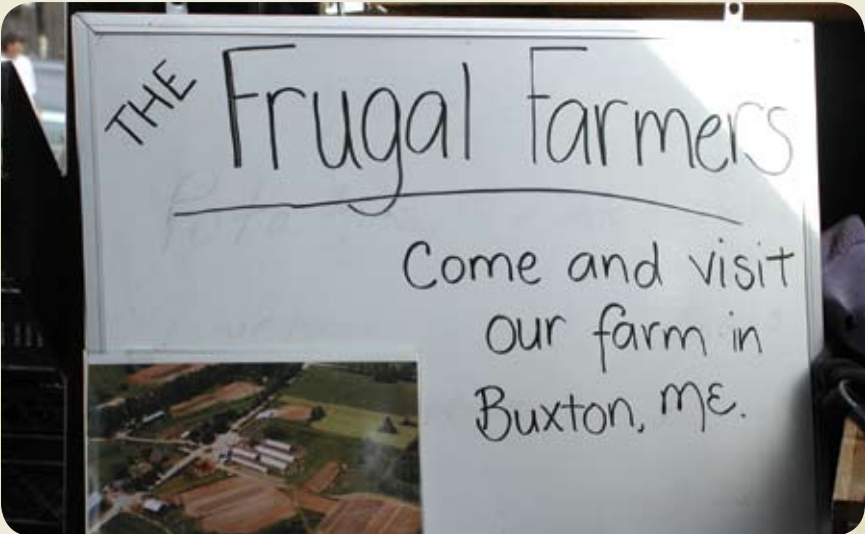 THE Frugal Farmers
Come and visit
our farm in
Buxton, ME.